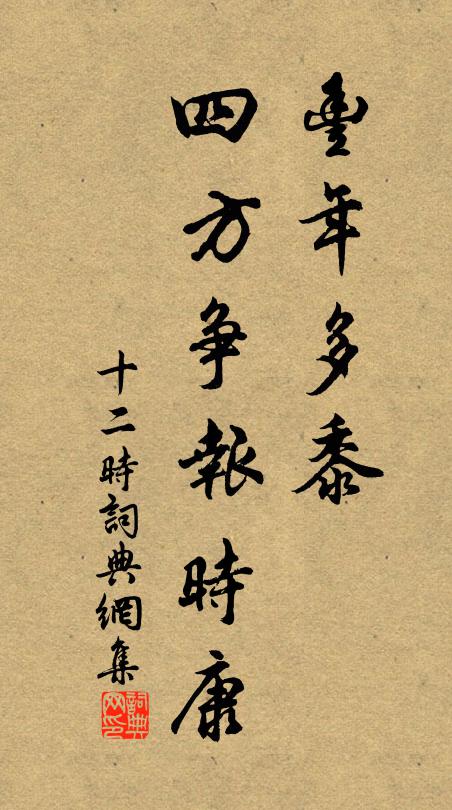 豐年多黍
四方爭報時康
十二時詞典網集
詞典
网印